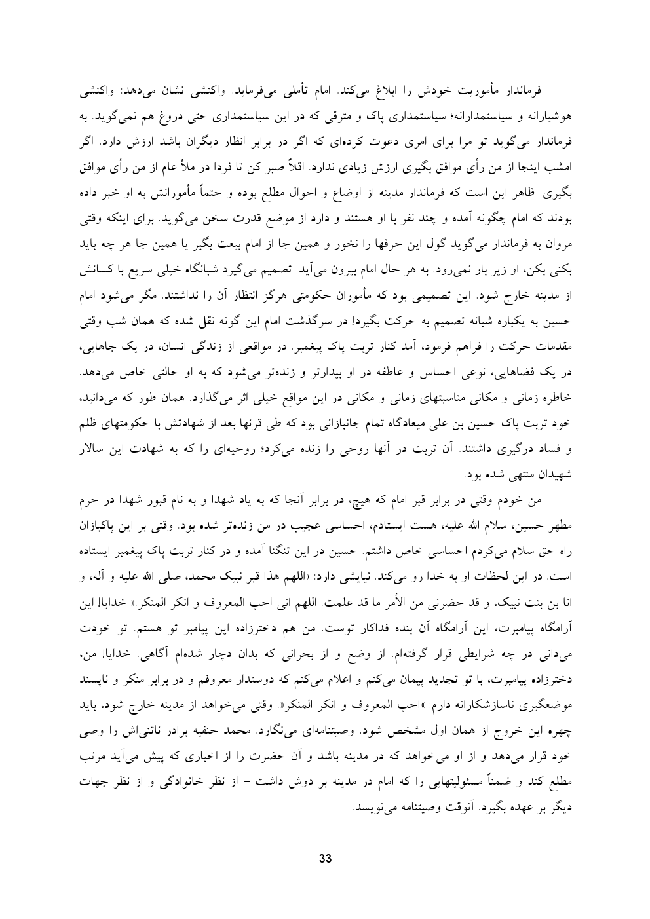 فرماندار مأموریت خودش را ابلاغ می‌کند. امام تأملی می‌فرماید. واکنشی نشان می‌دهد: واکنشی
هوشیارانه و سیاستمدارانه؛ سیاستمداری پاک و مترقی که در این سیاستمداری حتی دروغ هم نمی‌گوید. به
فرماندار می‌گوید تو مرا برای امری دعوت کرده‌ای که اگر در برابر انظار دیگران باشد ارزش دارد. اگر
امشب اینجا از من رأی موافق بگیری ارزش زیادی ندارد. اقلاً صبر کن تا فردا در ملأ عام از من رأی موافق
بگیری. ظاهر این است که فرماندار مدینه از اوضاع و احوال مطلع بوده و حتماً مأمورانش به او خبر داده
بودند که امام چگونه آمده و چند نفر با او هستند و دارد از موضع قدرت سخن می‌گوید. برای اینکه وقتی
مروان به فرماندار می‌گوید گول این حرفها را نخور و همین جا از امام بیعت بگیر یا همین جا هر چه باید
بکنی بکن، او زیر بار نمی‌رود. به هر حال امام بیرون می‌آید. تصمیم می‌گیرد شبانگاه خیلی سریع با کسانش
از مدینه خارج شود. این تصمیمی بود که مأموران حکومتی هرگز انتظار آن را نداشتند. مگر می‌شود امام
حسین به یکباره شبانه تصمیم به حرکت بگیرد! در سرگذشت امام این گونه نقل شده که همان شب وقتی
مقدمات حرکت را فراهم فرمود، آمد کنار تربت پاک پیغمبر. در مواقعی از زندگی انسان، در یک جاهایی،
در یک فضاهایی، نوعی احساس و عاطفه در او بیدارتر و زنده‌تر می‌شود که به او حالتی خاص می‌دهد.
خاطره زمانی و مکانی مناسبتهای زمانی و مکانی در این مواقع خیلی اثر می‌گذارد. همان طور که می‌دانید،
خود تربت پاک حسین بن علی میعادگاه تمام جانبازانی بود که طی قرنها بعد از شهادتش با حکومتهای ظلم
و فساد درگیری داشتند. آن تربت در آنها روحی را زنده می‌کرد؛ روحیه‌ای را که به شهادت این سالار
شهیدان منتهی شده بود.
من خودم وقتی در برابر قبر امام که هیچ، در برابر آنجا که به یاد شهدا و به نام قبور شهدا در حرم
مطهر حسین، سلام الله علیه، هست ایستادم، احساسی عجیب در من زنده‌تر شده بود. وقتی بر این پاکبازان
راه حق سلام می‌کردم احساسی خاص داشتم. حسین در این تنگنا آمده و در کنار تربت پاک پیغمبر ایستاده
است. در این لحظات او به خدا رو می‌کند. نیایشی دارد: «اللهم هذا قبر نبیک محمد، صلی الله علیه و آله، و
انا بن بنت نبیک، و قد حضرنی من الأمر ما قد علمت. اللهم انی احب المعروف و انکر المنکر.» خدایا! این
آرامگاه پیامبرت، این آرامگاه آن بنده فداکار توست. من هم دخترزاده این پیامبر تو هستم. تو خودت
می‌دانی در چه شرایطی قرار گرفته‌ام. از وضع و از بحرانی که بدان دچار شده‌ام آگاهی. خدایا، من،
دخترزاده پیامبرت، با تو تجدید پیمان می‌کنم و اعلام می‌کنم که دوستدار معروفم و در برابر منکر و ناپسند
موضعگیری ناسازشکارانه دارم «احب المعروف و انکر المنکر». وقتی می‌خواهد از مدینه خارج شود، باید
چهره این خروج از همان اول مشخص شود. وصیتنامه‌ای می‌نگارد. محمد حنفیه برادر ناتنی‌اش را وصی
خود قرار می‌دهد و از او می‌خواهد که در مدینه باشد و آن حضرت را از اخباری که پیش می‌آید مرتب
مطلع کند و ضمناً مسئولیتهایی را که امام در مدینه بر دوش داشت – از نظر خانوادگی و از نظر جهات
دیگر بر عهده بگیرد. آنوقت وصیتنامه می‌نویسد.
33